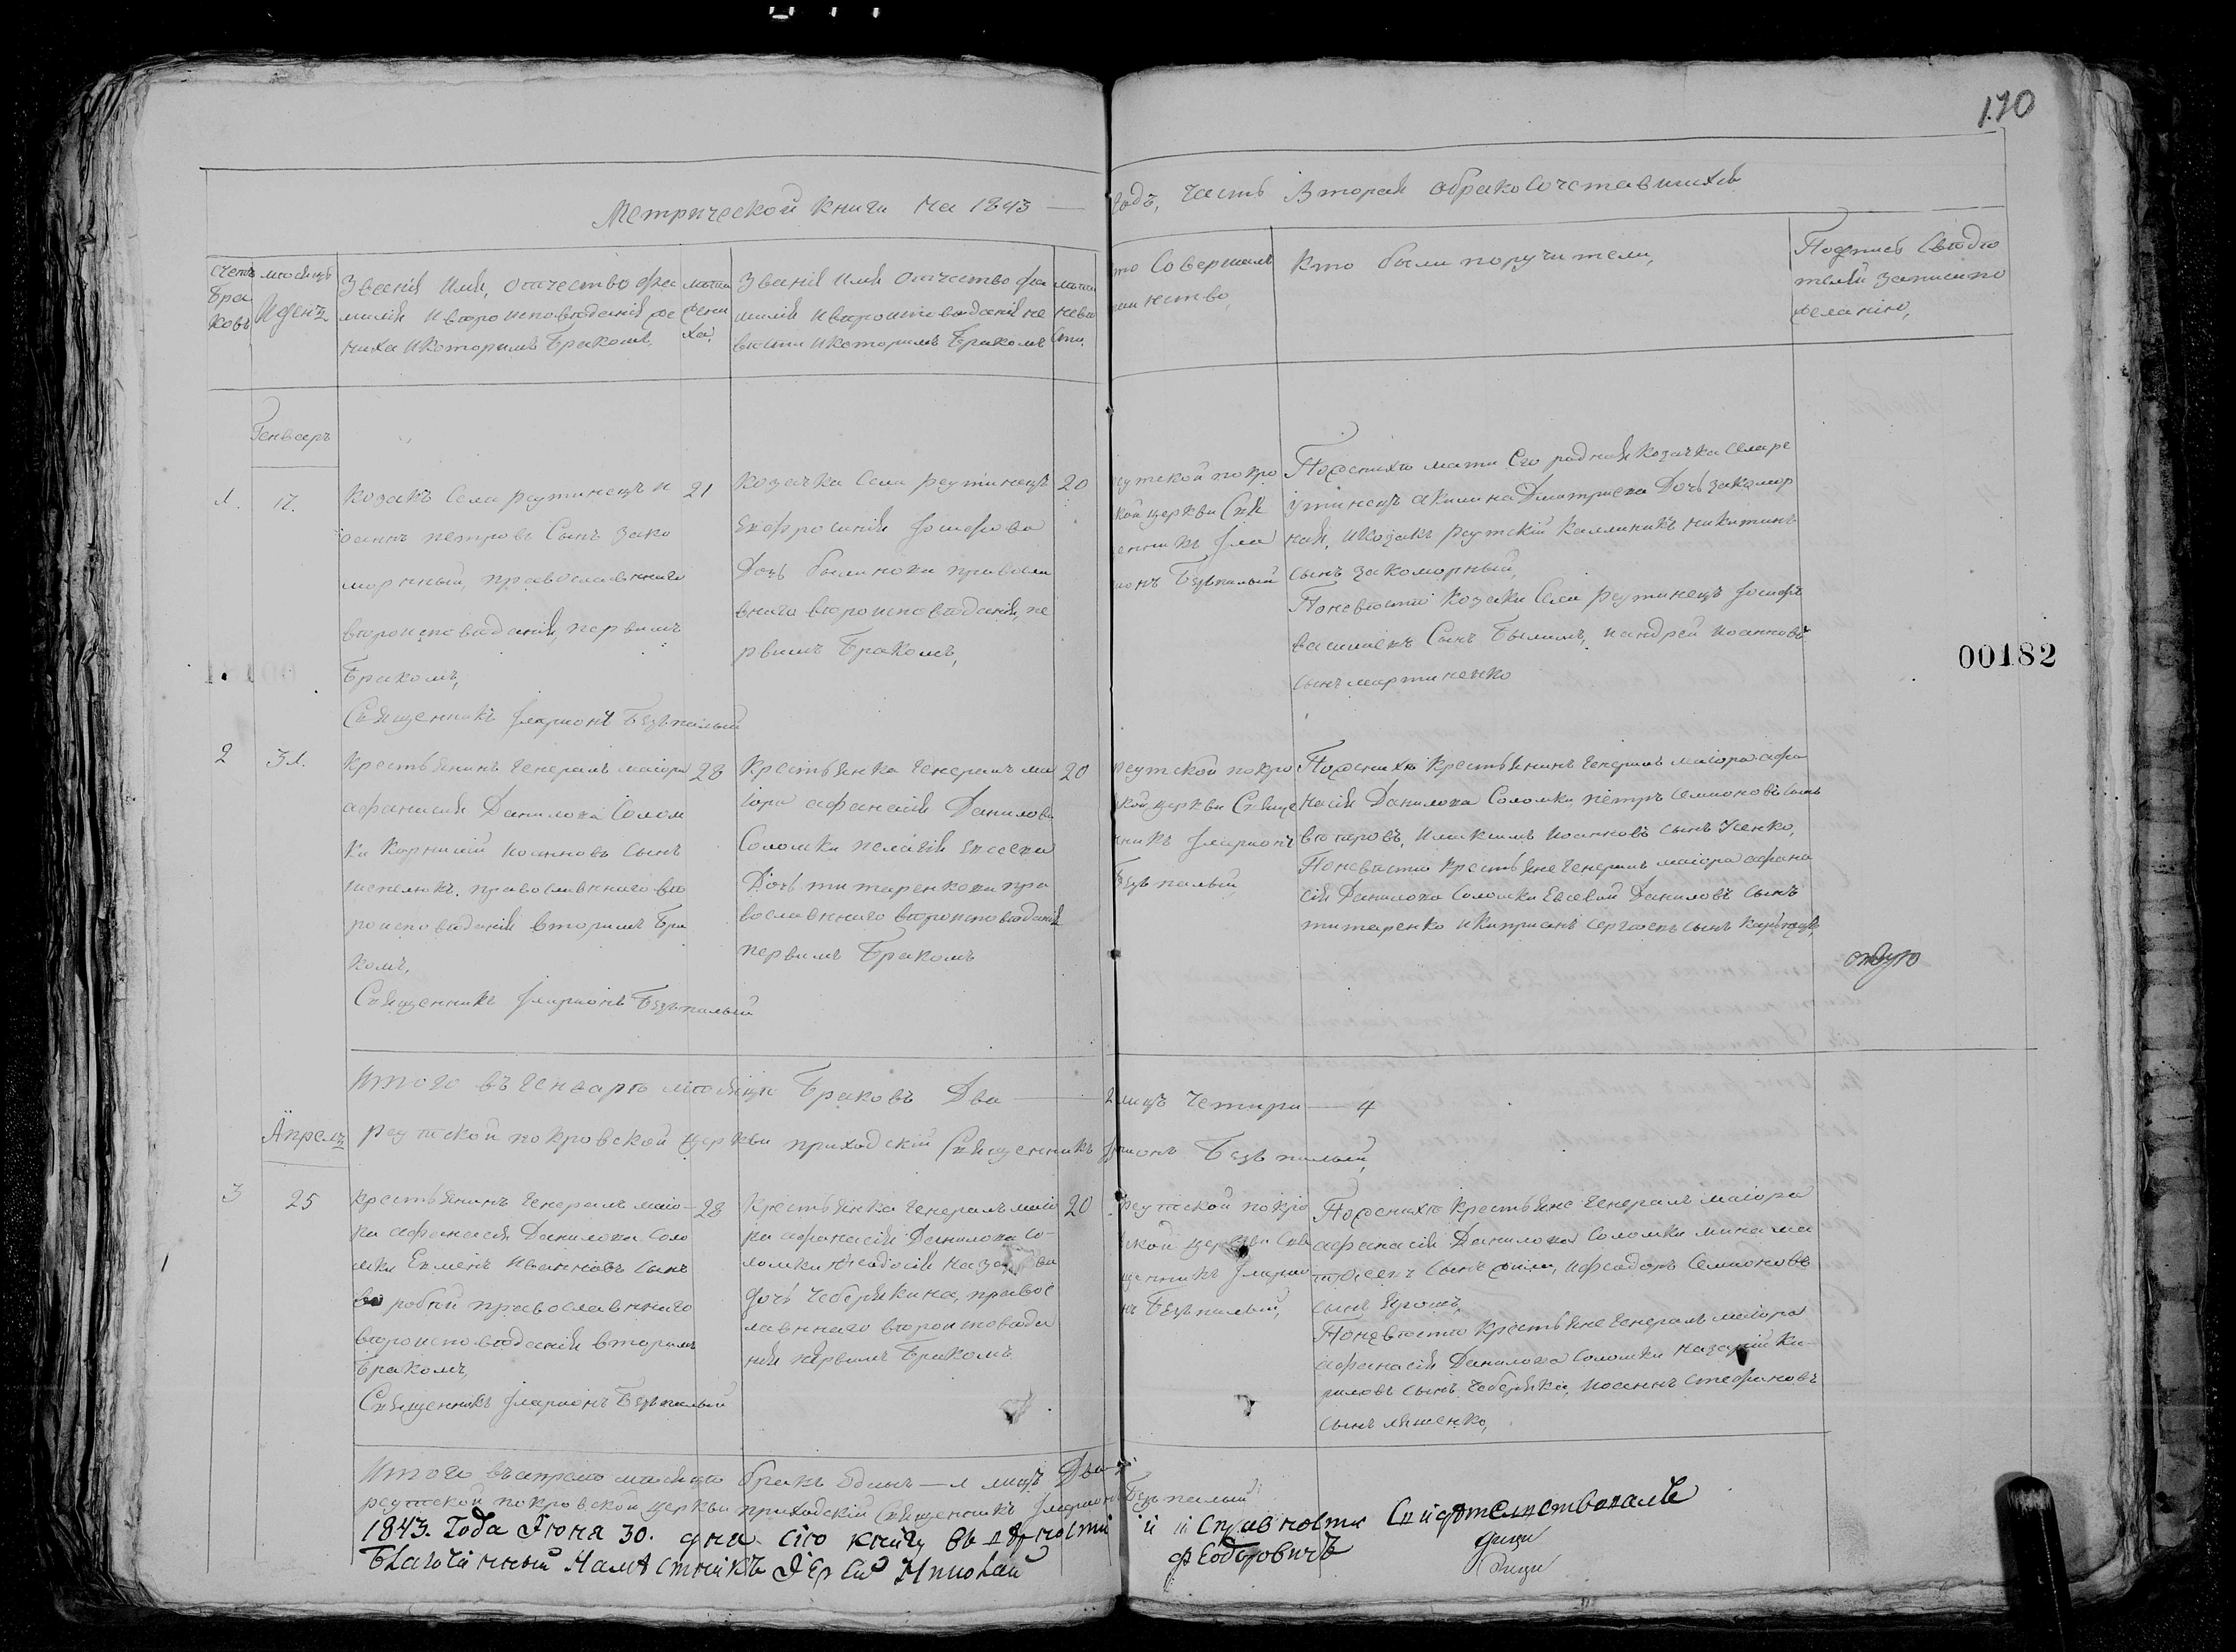 170
Метрической книги на 1843
годъ, часть Вторая обракосочетавшихся
Счетъ
Бра
ковъ
мѣсяцъ
И день
Званія Имя, отчество фа
милія ивѣроисповѣданія же
ниха икоторымъ Бракомъ,
лѣта
жени
ха.
Званія Имя отчество фа
милія ивѣроисповѣданія не
вѣсты икоторымъ Бракомъ
лѣта
невѣ
сты.
то Совершалъ
таинство,
Кто были поручители,
Подпись Свидѣ
телей записи по
желанію,
Генваръ
1.
17.
Козакъ Села реутинецъ и
оаннъ петровъ Сынъ зако
морный, православнаго
вѣроисповѣданія, первымъ
Бракомъ,
Священникъ Іларионъ Безпалый
21
Козачка Села реутинецъ
Евфросинія Іосифова
Дочь былинова правосла
внаго вѣроисповѣданія, пе
рвымъ Бракомъ,
20
реутской покро
кой церкви Свя
енникъ Іла
ионъ Безпалый
По женихѣ мати Его родная козачка села ре
утинецъ акилина Дмитриева Дочь закомор
ная, икозакъ реутскій каллиникъ никитинъ
сынъ закоморный,
По невѣстѣ козаки Села реутинецъ Іосифъ
василіевъ Сынъ Былимъ, иандрей иоанновъ
сынъ мартиненко
00182
2
31.
крестьянинъ генералъ маіора
афанасия Данилова Солом
ки корнилій иоанновъ сынъ
православнаго вѣ
роисповѣданія вторымъ Бра
комъ,
Священникъ Іларионъ Безпалый
28
крестьянка генералъ ма
іора афанасія Данилова
Соломки пелагія евсеева
Дочь титаренкова пра
вославнаго вѣроисповѣданія
первымъ Бракомъ
20
реутской покро
кой, церкви Свяще
никъ Іларионъ
Безпалый
По женихѣ крестьянинъ генералъ маіора афа
насія Данилова Соломки, пётръ семионовъ сынъ
иМаксимъ иоанновъ сынъ Усенко,
По невѣстѣ крестьяне генералъ маіора афана
сія Данилова Соломки Евсевій Даниловъ сынъ
титаренко икиприанъ сергіевъ сынъ
Итого въ генварѣ мѣсяцѣ Браковъ Два — 2 лицъ Четыри — 4
реутской покровской церкви приходскій Священникъ Іларионъ Безпалый,
Апрель
3
25
крестьянинъ генералъ маіо
ра афанасія Данилова Соло
мки Евменъ Иванновъ сынъ
воробий православнаго
вѣроисповѣданія вторымъ
Бракомъ,
Священникъ Іларионъ Безпалый
28
Крестьянка генералъ маіо
ра афанасія Данилова Со-
ломки Феодосія
дочь Чебрякина, правос
лавнаго вѣроисповѣда
нія первымъ Бракомъ
20
реутской покро
ской церкви Свя
щенникъ Іларио
нъ Безпалый,
По женихѣ крестьяне генералъ маіора
афанасія Данилова Соломки мина
сынъ иФеодоръ Семионовъ
сынъ
По невѣстѣ крестьяне генералъ маіора
афанасія Данилова Соломки назарий Ки-
риловъ сынъ Чебряка, иоаннъ стефановъ
сынъ ляшенко,
Итого въ апрелѣ мѣсяцѣ бракъ одинъ — 1 лицъ Два — 2
реутской покровской церкви приходскій Священникъ Іларионъ Безпалый
1843. Года Іюня 30. дня сію книгу въ вѣрности и исправности Свидѣтелствовалъ
Благочинный Намѣстникъ Іерей Николай Феодоровичъ